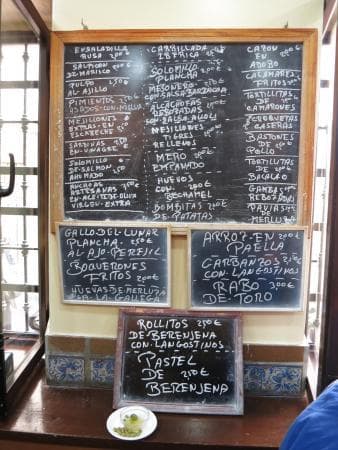 ENSALADILLA
RUSA 2,00€
SALPICON
DE MARISCO
PULPO
AL AJILLO
PIMIENTOS
ASADOS-CON-MELVA
MEJILLONES
EXTRAS-EN
ESCABECHE
SARDINAS
EN-VINAGRE
SOLOMILLO
DE-SALMON
AHUMADO
ANCHOAS
ARTESANAS
EN-ACEITE-OLIVA
VIRGEN-EXTRA
CARRILLADA
IBERICA
SOLOMILLO
PLANCHA
MESONERO
CON-SALSA
ALCACHOFAS
REBOZADAS
CON-SALSA-ALIOLI
MEJILLONES
TIGRES
RELLENOS
MERO
EMPANADO
HUEVOS
CON
BECHAMEL
BOMBITAS
DE-PATATAS
CAZON EN
ADOBO
CALAMARES
FRITOS
TORTILLITAS
DE
CAMARONES
CROQUETAS
CASERAS
BASTONES
DE
POLLO
TORTILLITAS
DE
BACALAO
GAMBAS
REBOZADAS
PAVIAS
DE
MERLUZA
GALLO-DEL-LUNAR
PLANCHA 2,50€
AL AJO-PEREJIL
BOQUERONES
FRITOS 2,50€
HUEVAS-DE-MERLUZA
A-LA-GALLEGA
ARROZ-EN
PAELLA
GARBANZOS
CON-LANGOSTINOS
RABO 3,00€
DE-TORO
ROLLITOS 2,50€
DE-BERENJENA
CON-LANGOSTINOS
PASTEL
DE 2,50€
BERENJENA